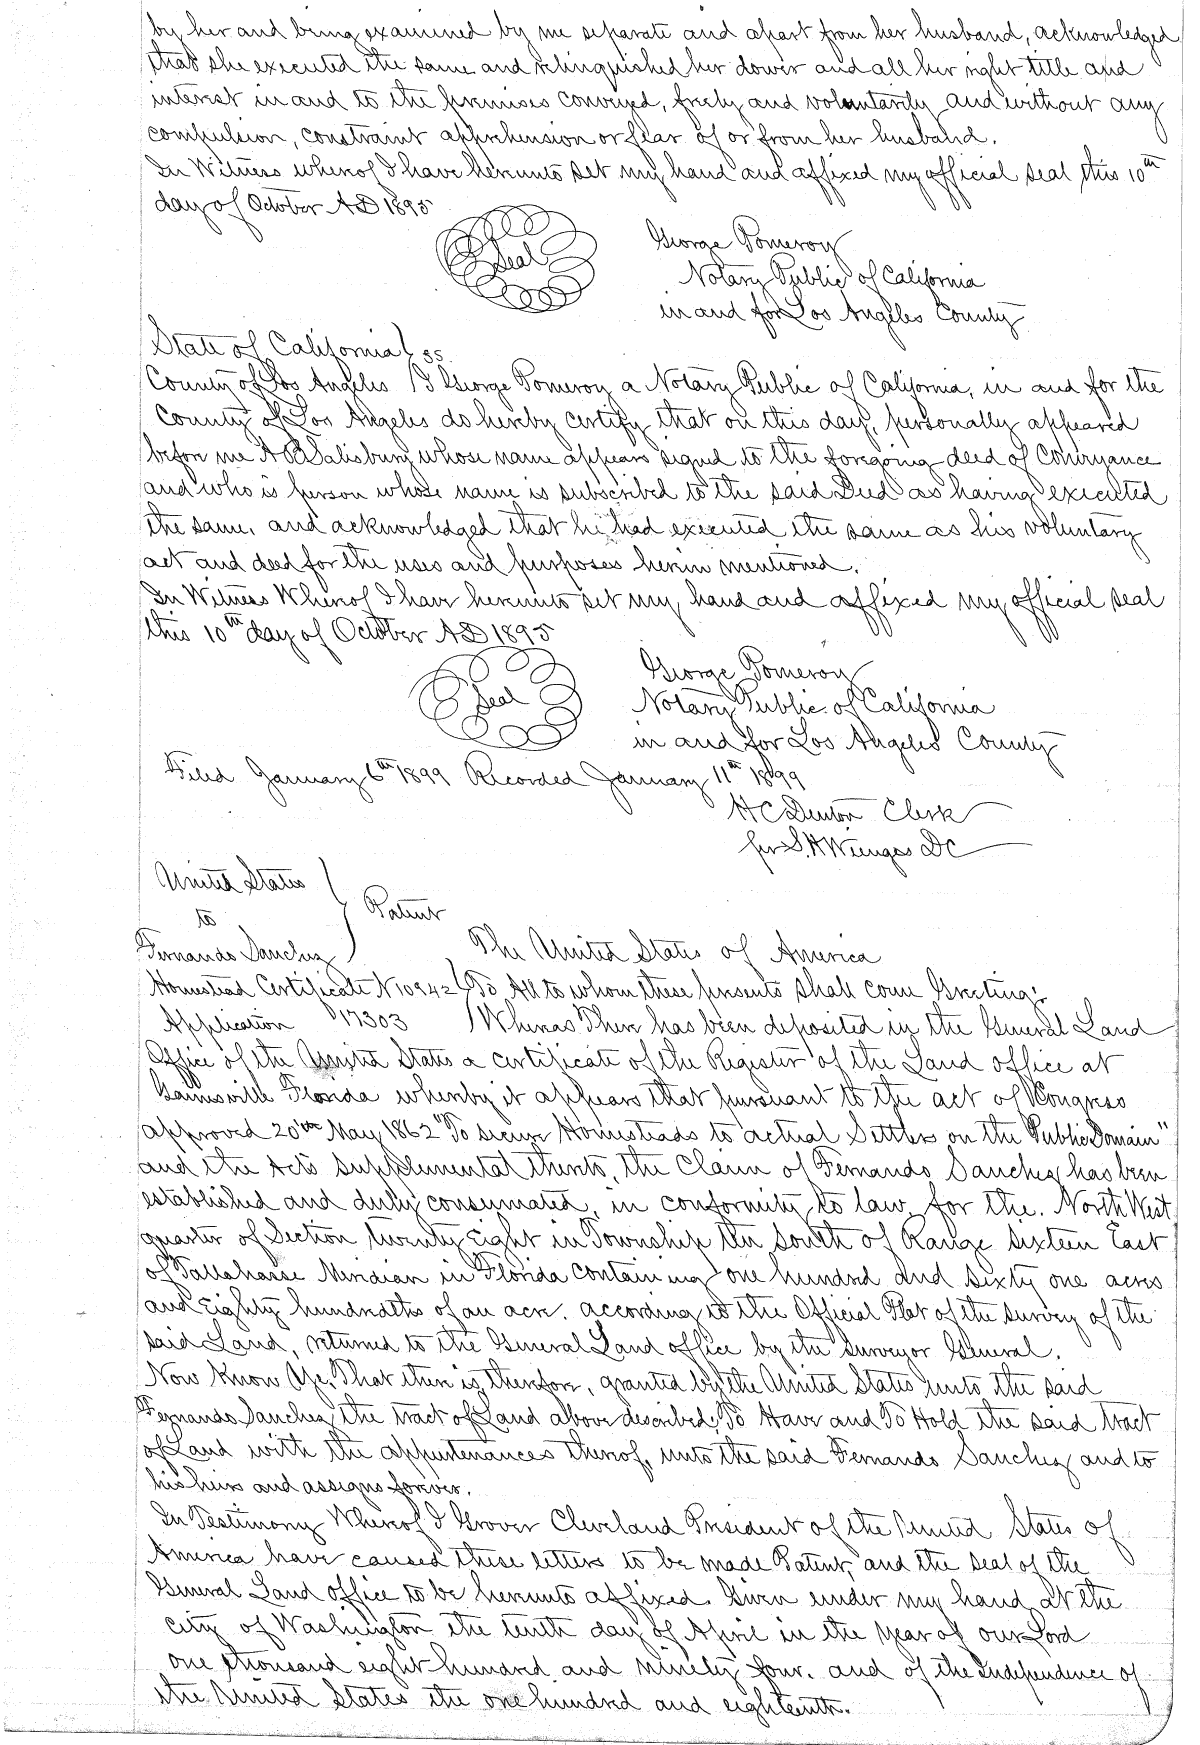 by her and being examined by me separate and apart from her husband, acknowledged
that she executed the same and relinquished her dower and all her right title and
interest in and to the premises conveyed, freely and voluntarily and without any
compulsion, constraint apprehension or fear of or from her husband.
In Witness whereof I have hereunto set my hand and affixed my official seal this 10th
day of October AD 1895
Seal
George Pomeroy
Notary Public of California
in and for Los Angeles County
State of California } ss.
County of Los Angeles } I George Pomeroy a Notary Public of California, in and for the
County of Los Angeles do hereby certify that on this day, personally appeared
before me A B Salisbury whose name appears signed to the foregoing deed of conveyance
and who is person whose name is subscribed to the said Deed as having executed
the same, and acknowledged that he had executed the same as his voluntary
act and deed for the uses and purposes herein mentioned.
In Witness Whereof I have hereunto set my hand and affixed my official seal
this 10th day of October AD 1895
Seal
George Pomeroy
Notary Public of California
in and for Los Angeles County
Filed January 6th 1899 Recorded January 11th 1899
H C Denton Clerk
per S. H Wienges DC
United States
to } Patent
Fernando Sanchez
The United States of America
Homestead Certificate No 10942 } To All to whom these presents shall come Greeting:
Application 17303 } Whereas There has been deposited in the General Land
Office of the United States a certificate of the Register of the Land office at
Gainesville Florida whereby it appears that pursuant to the act of Congress
approved 20th May 1862 "To secure Homesteads to actual Settlers on the Public Domain"
and the Acts supplemental thereto, the Claim of Fernando Sanchez has been
established and duly consumated, in conformity to law, for the. North West
quarter of Section twenty Eight in Township ten South of Range Sixteen East
of Tallahasse Meridian in Florida containing one hundred and sixty one acres
and Eighty hundredths of an acre. according to the Official Plat of the survey of the
said Land, returned to the General Land office by the Surveyor General.
Now Know Ye, That there is, therefore, granted by the United States unto the said
Fernando Sanchez the tract of Land above described; To Have and To Hold the said tract
of Land with the appurtenances thereof, unto the said Fernando Sanchez and to
his heirs and assigns forever.
In Testimony Whereof I Grover Cleveland President of the United States of
America have caused these letters to be made Patent, and the seal of the
General Land office to be hereunto affixed. Given under my hand at the
city of Washington the tenth day of April in the year of our Lord
one thousand eight hundred and ninety four. and of the Independence of
the United States the one hundred and eighteenth.